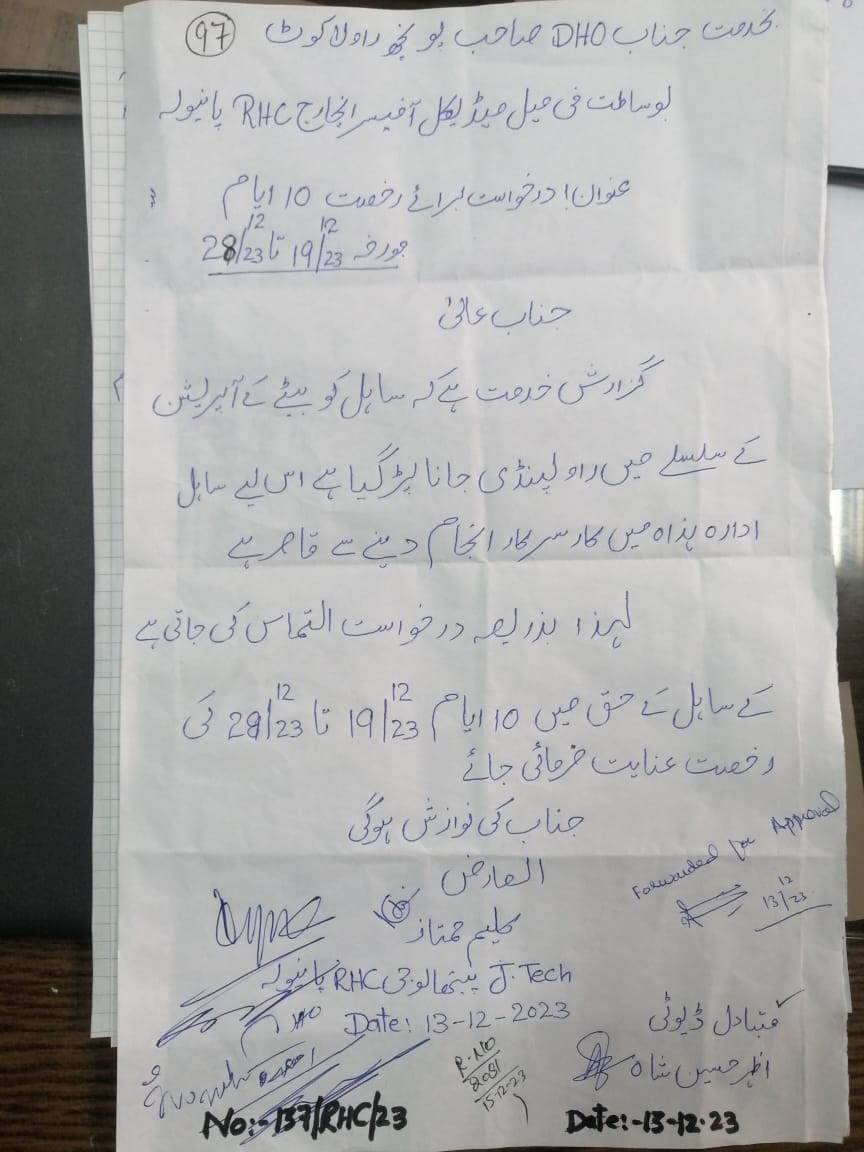 97
بخدمت جناب DHO صاحب پونچھ راولاکوٹ
بوساطت فی میل میڈیکل آفیسر انچارج RHC پانیولہ
عنوان! درخواست برائے رخصت 10 ایام
مورخہ 19/12/23 تا 28/12/23
جناب عالیٰ
گزارش خدمت ہے کہ سائل کو بیٹے کے آپریشن
کے سلسلے میں راولپنڈی جانا پڑ گیا ہے اس لیے سائل
ادارہ ہذاہ میں کار سرکار انجام دینے سے قاصر ہے
لہذا بذریعہ درخواست التماس کی جاتی ہے
کے سائل کے حق میں 10 ایام 19/12/23 تا 28/12/23 کی
رخصت عنایت فرمائی جائے
جناب کی نوازش ہوگی
العارض
Forwarded for Approval
13/12/23
کلیم ممتاز
J.Tech پیتھالوجی RHC پانیولہ
Date: 13-12-2023
متبادل ڈیوٹی
اظہر حسین شاہ
DHO
R.NO
2081
15-12-23
No:-137/RHC/23
Date:-13-12-23